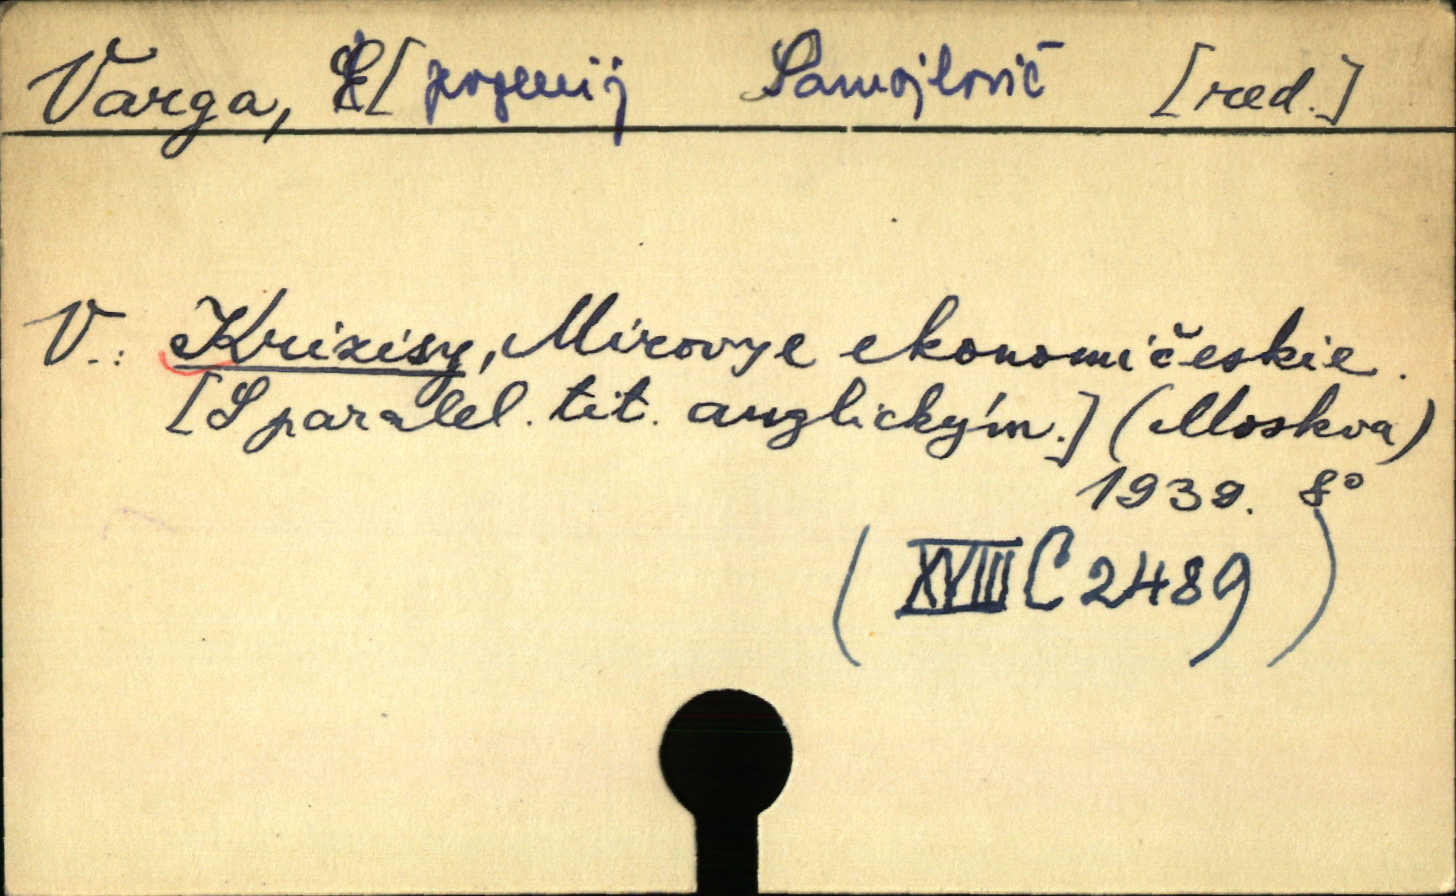 Varga, E[vgenij Samojlovič [red.]
V.: Krizisy, Mirovye ekonomičeskie.
[S paralel. tit. anglickým.] (Moskva)
1939. 8°
(XVIII C 2489)